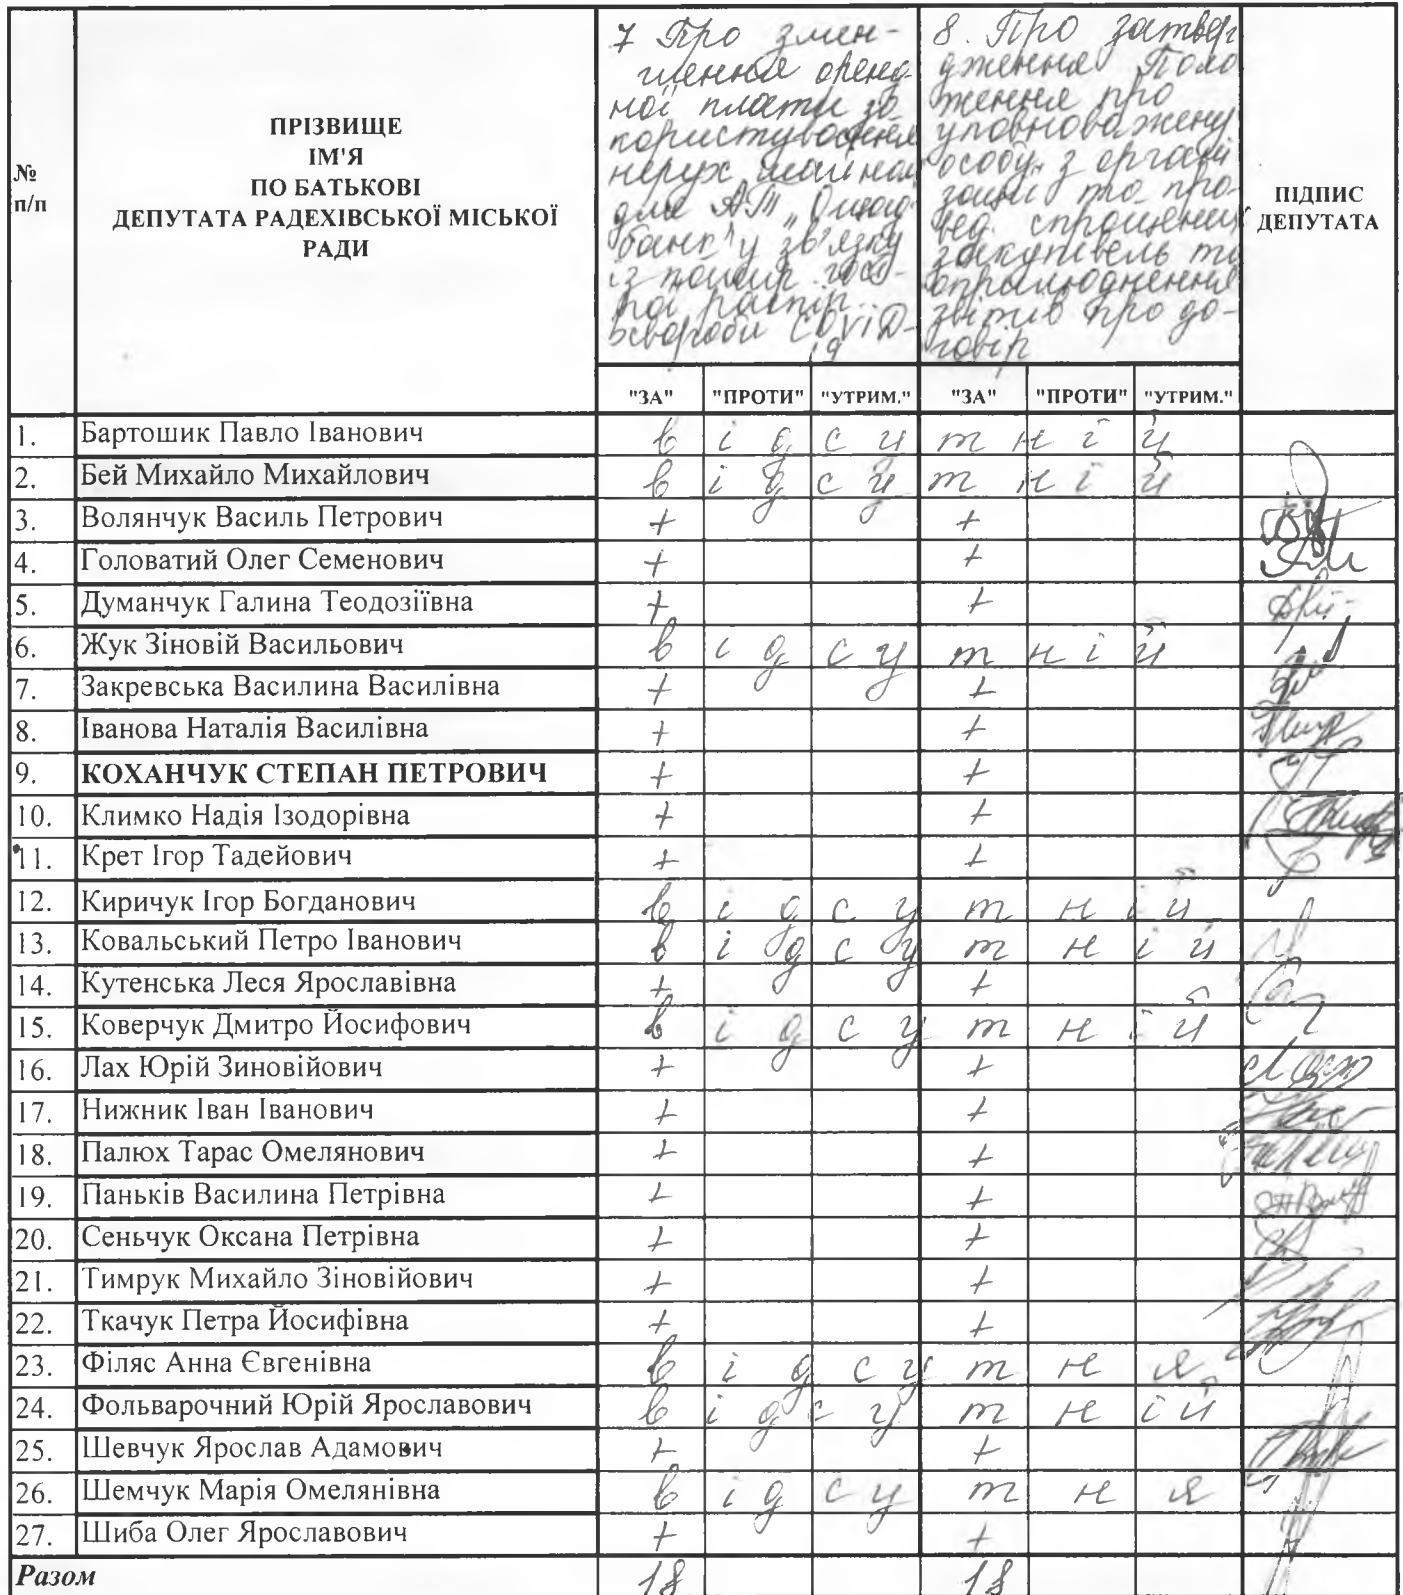 №
п/п
ПРІЗВИЩЕ
ІМ'Я
ПО БАТЬКОВІ
ДЕПУТАТА РАДЕХІВСЬКОЇ МІСЬКОЇ
РАДИ
7 Про змен-
шення оренд
ної плати за
користування
нерух. майном
для АТ „Ощад
банк" у зв'язку
із пошир. гост-
рої распір.
хвороби COVID-
19
8. Про затвер
дження Поло
ження про
уповноважену
особу з органі
зації та про-
вед. спрощених
закупівель та
оприлюднення
звітів про до-
говір
ПІДПИС
ДЕПУТАТА
"ЗА" "ПРОТИ" "УТРИМ." "ЗА" "ПРОТИ" "УТРИМ."
1. Бартошик Павло Іванович відсутній
2. Бей Михайло Михайлович відсутній
3. Волянчук Василь Петрович + +
4. Головатий Олег Семенович + +
5. Думанчук Галина Теодозіївна + +
6. Жук Зіновій Васильович відсутній
7. Закревська Василина Василівна + +
8. Іванова Наталія Василівна + +
9. КОХАНЧУК СТЕПАН ПЕТРОВИЧ + +
10. Климко Надія Ізодорівна + +
11. Крет Ігор Тадейович + +
12. Киричук Ігор Богданович відсутній
13. Ковальський Петро Іванович відсутній
14. Кутенська Леся Ярославівна + +
15. Коверчук Дмитро Йосифович відсутній
16. Лах Юрій Зиновійович + +
17. Нижник Іван Іванович + +
18. Палюх Тарас Омелянович + +
19. Паньків Василина Петрівна + +
20. Сеньчук Оксана Петрівна + +
21. Тимрук Михайло Зіновійович + +
22. Ткачук Петра Йосифівна + +
23. Філяс Анна Євгенівна відсутня
24. Фольварочний Юрій Ярославович відсутній
25. Шевчук Ярослав Адамович + +
26. Шемчук Марія Омелянівна відсутня
27. Шиба Олег Ярославович + +
Разом 18 18